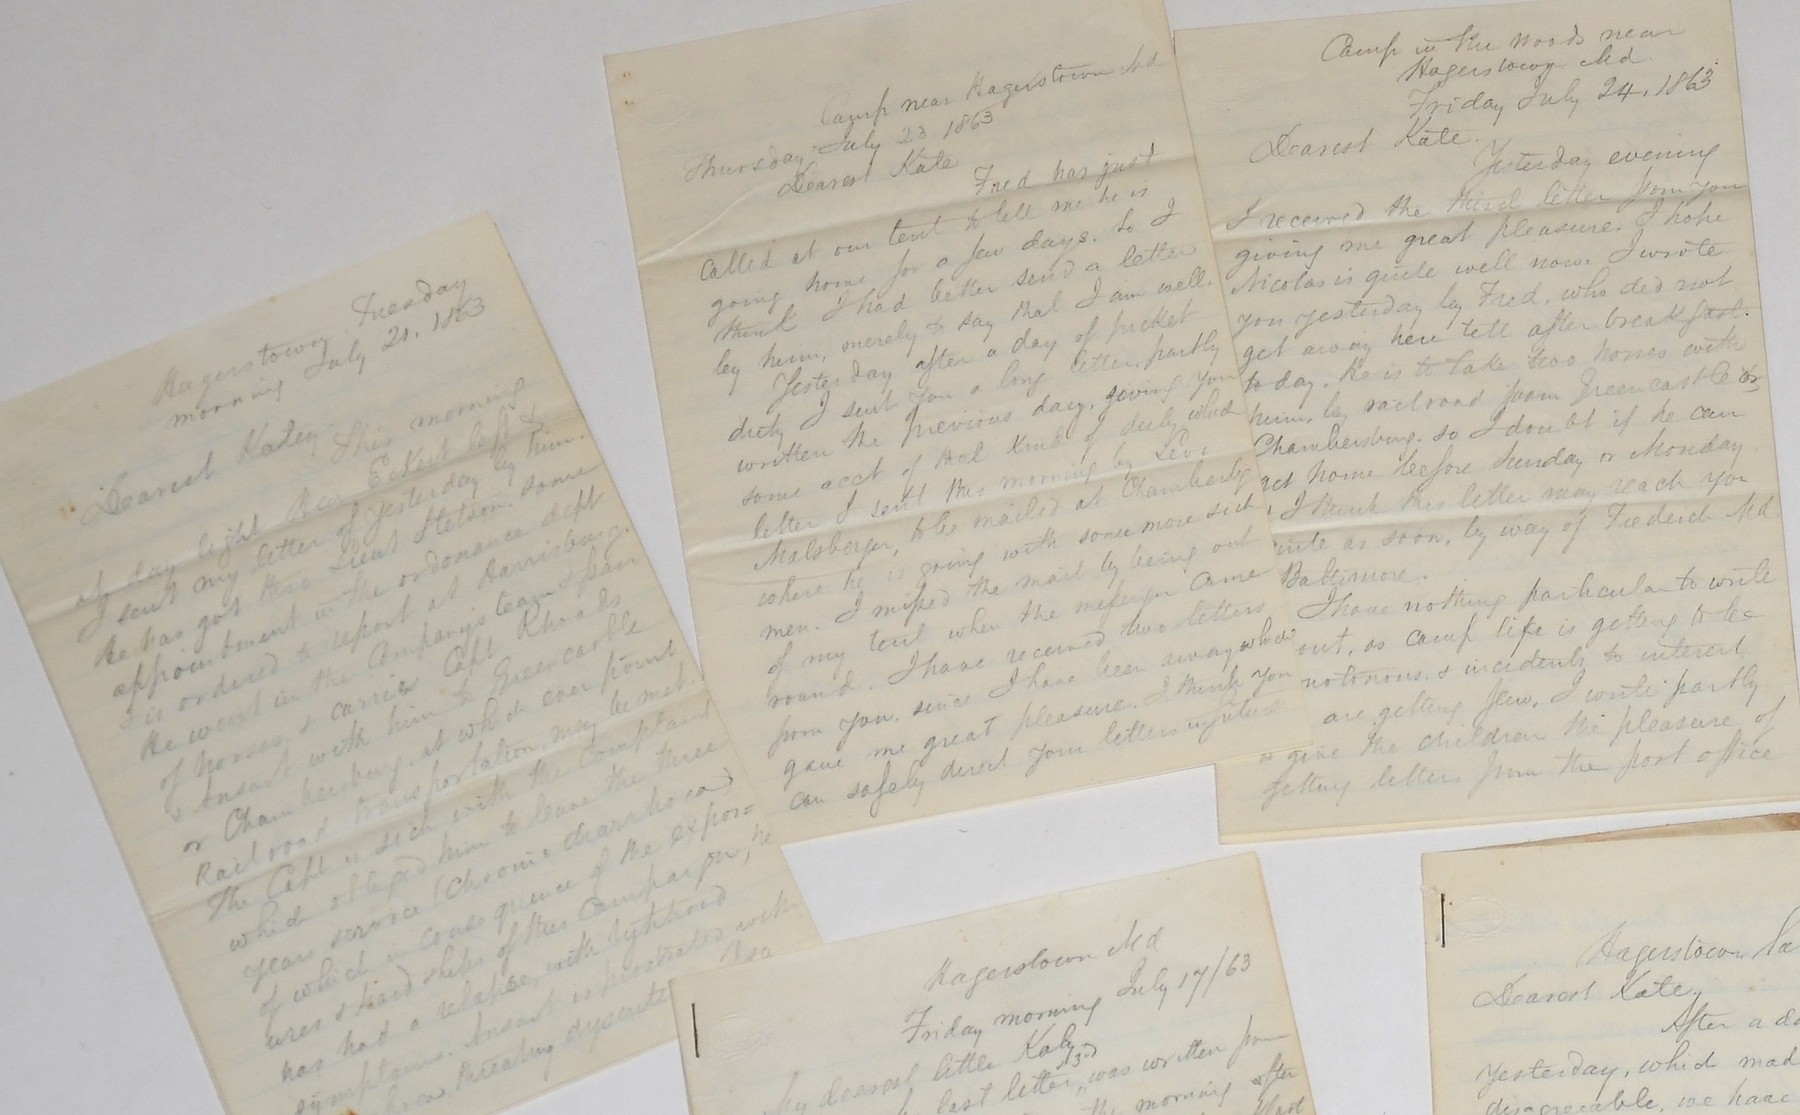 Hagerstown Tuesday
morning July 21, 1863
Dearest Katey
This morning
at day light Dear Eckert left &
I sent my letter of yesterday by him.
He has got thro Lieut Stetson, some
appointment in the ordonance dept
& is ordered to report at Harrisburg.
He went in the Company's team & pair
of horses, & carries Capt Rhoads
& Ansart with him to Greencastle
or Chambersburg, at which ever point
Rail road transportation may be met.
The Capt is sick with the Complaint
which obliged him to leave the three
years service (Chronic Diarrhoea)
of which in consequence of the expos=
ures & hard ships of this Campaign, he
has had a relapse, with typhoid
symptoms. Ansart is prostrated with
threating dysentery
Camp near Hagerstown Md
Thursday July 23 1863
Dearest Kate
Fred has just
called at our tent to tell me he is
going home for a few days. So I
think I had better send a letter
by him, merely to say that I am well.
Yesterday after a day of picket
duty I sent you a long letter, partly
written the previous day, giving you
some acct of that kind of duty, which
letter I sent this morning by Levi
Malsberger, to be mailed at Chambersbg
where he is going with some more sick
men. I missed the mail by being out
of my tent when the messenger came
round. I have received two letters
from you since I have been away which
gave me great pleasure. I think you
can safely direct your letters in future
Camp in the woods near
Hagerstown Md.
Friday July 24, 1863
Dearest Kate.
Yesterday evening
I received the third letter from you
giving me great pleasure. I hope
Nicolas is quite well now. I wrote
you yesterday by Fred, who did not
get away here till after breakfast
today. He is to take two horses with
him, by railroad from Greencastle or
Chambersburg. So I doubt if he can
get home before Sunday or Monday.
I think this letter may reach you
quite as soon, by way of Frederick Md.
Baltimore.
I have nothing particular to write
out, as camp life is getting to be
notonous, & incidents to interest,
are getting few, I write partly
to give the children the pleasure of
getting letters from the post office
Hagerstown Md
Friday morning July 17/63
My dearest little Katy
last letter, was written from
the morning after
Hagerstown Sa
Dearest Kate,
After a da
yesterday, which mad
disagreeable, we have